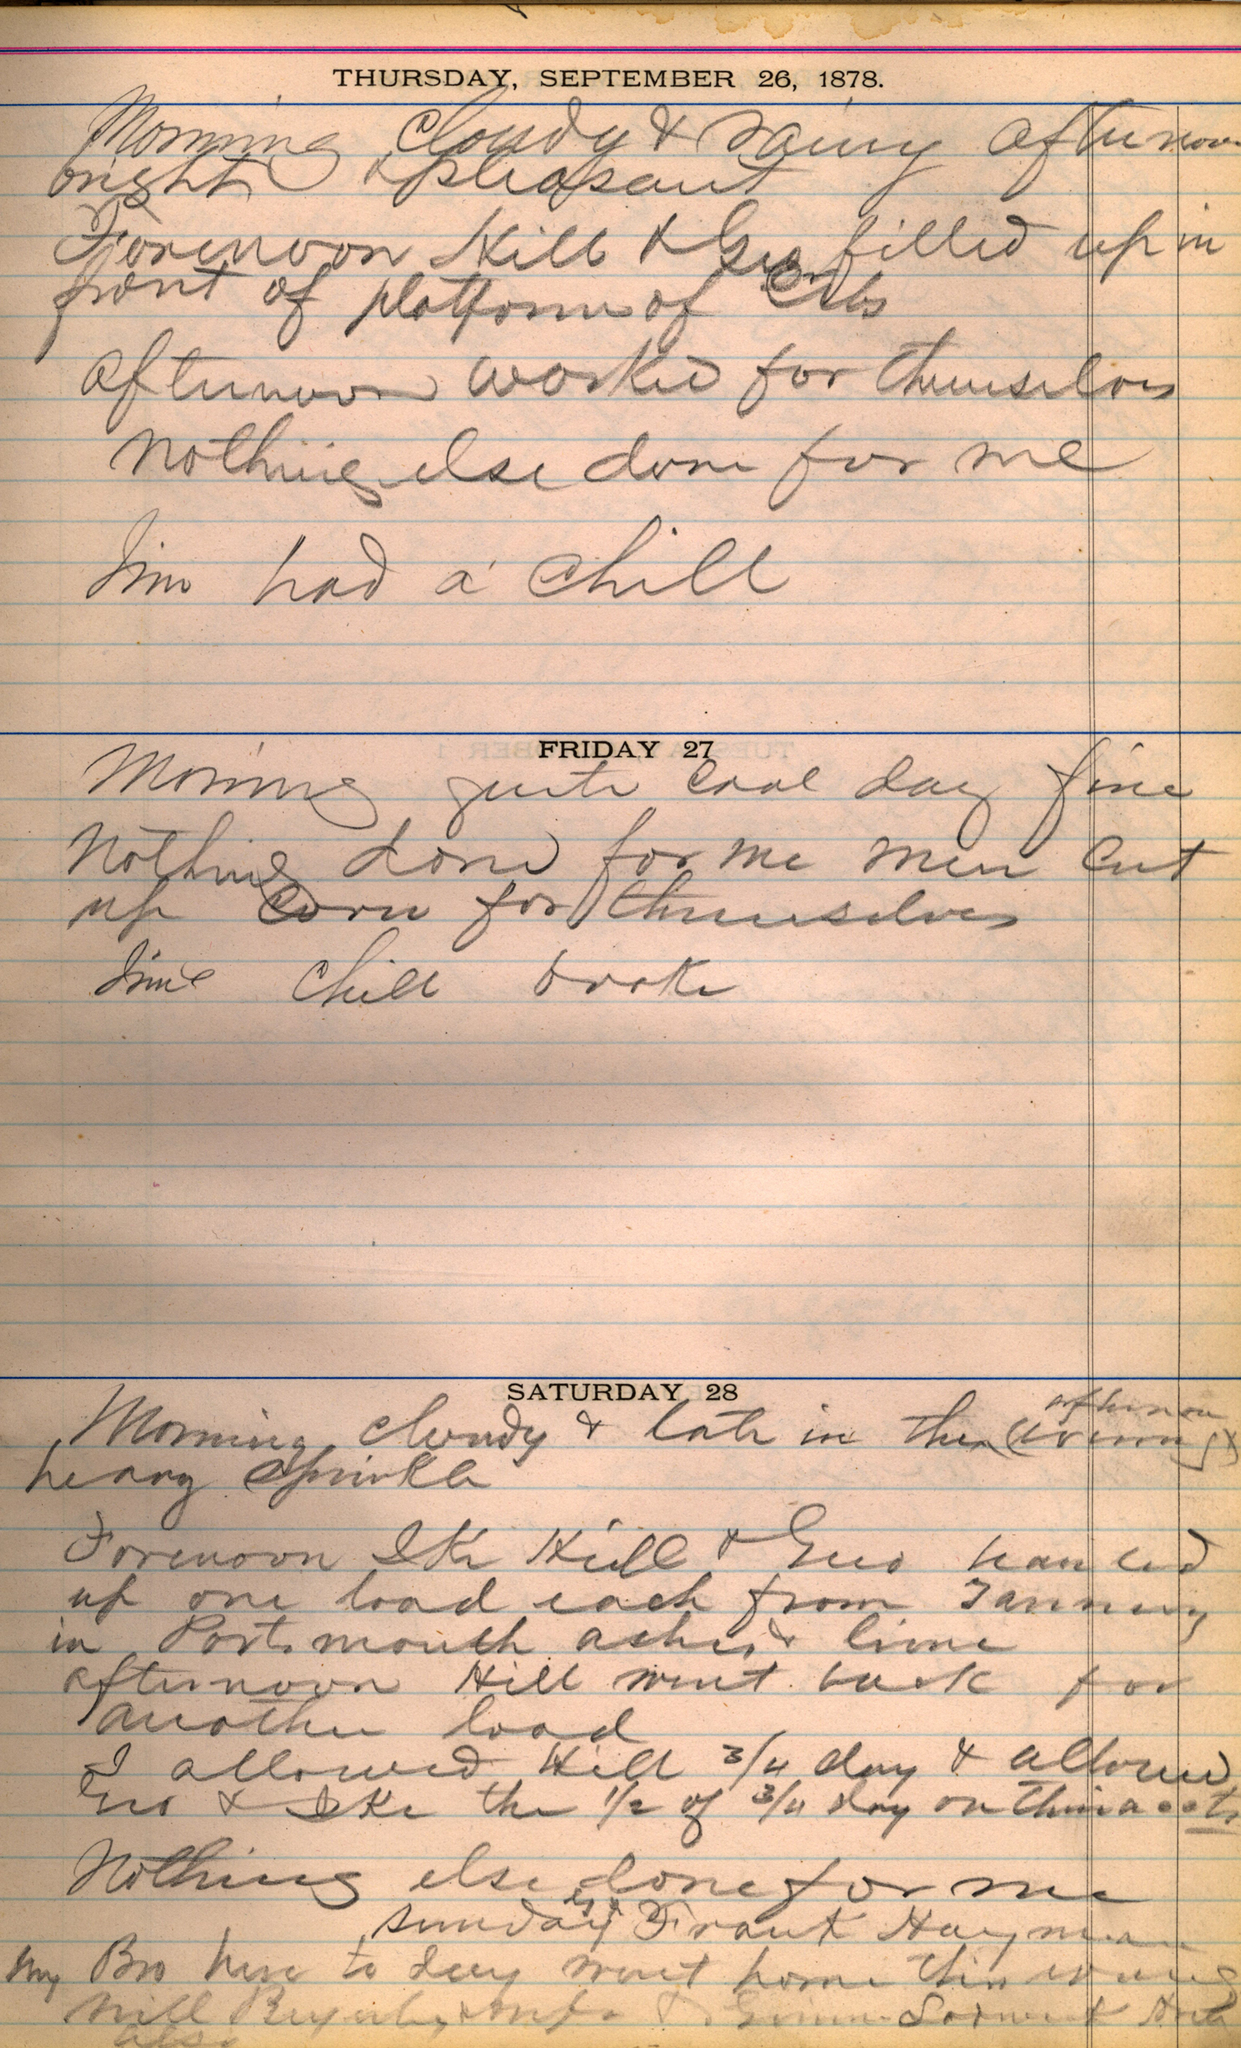 THURSDAY, SEPTEMBER 26, 1878.
Morning cloudy & rainy afternoon
bright & pleasant
Forenoon Hill & Geo filled up in
front of platform of Cribs
afternoon worked for themselves
Nothing else done for me
Jim had a chill
FRIDAY 27
Morning quite cool day fine
Nothing done for me men cut
up corn for themselves
Jims chill broke
SATURDAY 28
afternoon
Morning cloudy & late in the (evening) &
heavy sprinkle
Forenoon Ike Hill & Geo hauled
up one load each from Tannery
in Portsmouth ashes & lime
afternoon Hill went back for
another load
I allowed Hill 3/4 day & allowed
Geo & Ike the 1/2 of 3/4 day on their accts
Nothing else done for me
Sunday Frank Hayman
my Bro here to day went home this evening
Will & wife &
also